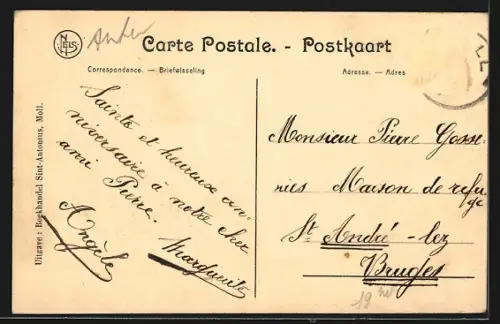 NELS
Carte Postale. - Postkaart
Correspondance. — Briefwisseling
Adresse. — Adres
Uitgave: Boekhandel Sint-Antonius, Moll.
Sainte et heureuse an-
niversaire à notre cher
ami Pierre.
Angèle
Marguerite
Monsieur Pierre Gosse-
ries Maison de refu-
ge
St André - lez
Bruges
19